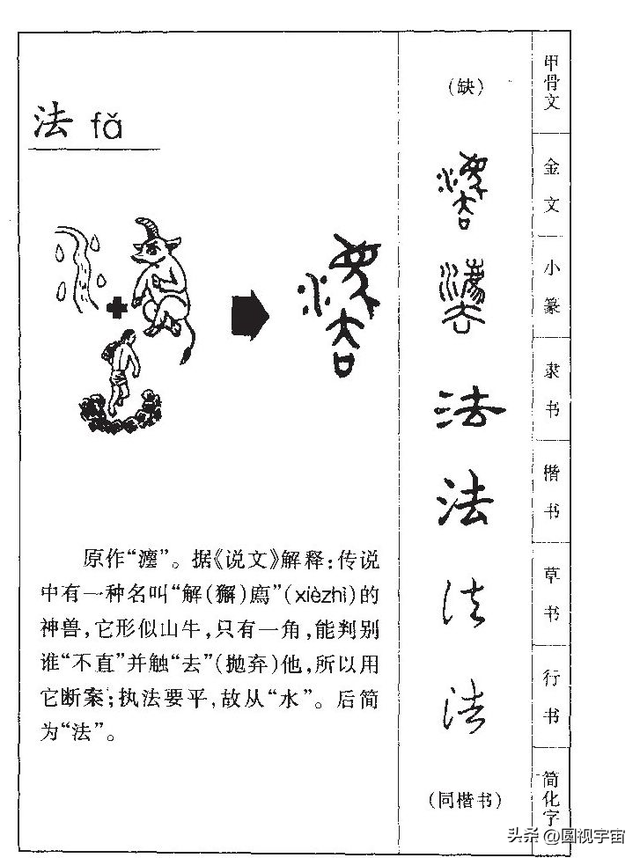 法 fǎ
原作“灋”。据《说文》解释：传说
中有一种名叫“解(獬)廌”(xièzhì)的
神兽，它形似山牛，只有一角，能判别
谁“不直”并触“去”(抛弃)他，所以用
它断案；执法要平，故从“水”。后简
为“法”。
(缺)
甲骨文
灋
金文
灋
小篆
法
隶书
法
楷书
法
草书
法
行书
(同楷书)
简化字
头条 @圆视宇宙